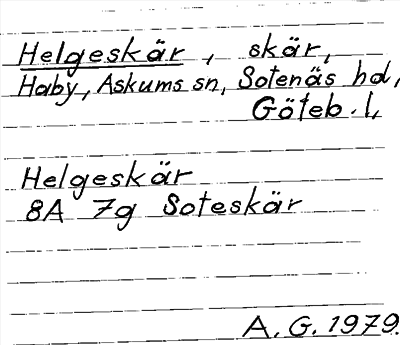 Helgeskär, skär,
Haby, Askums sn, Sotenäs hd,
Göteb. l,
Helgeskär
8A 7g Soteskär
A. G. 1979.